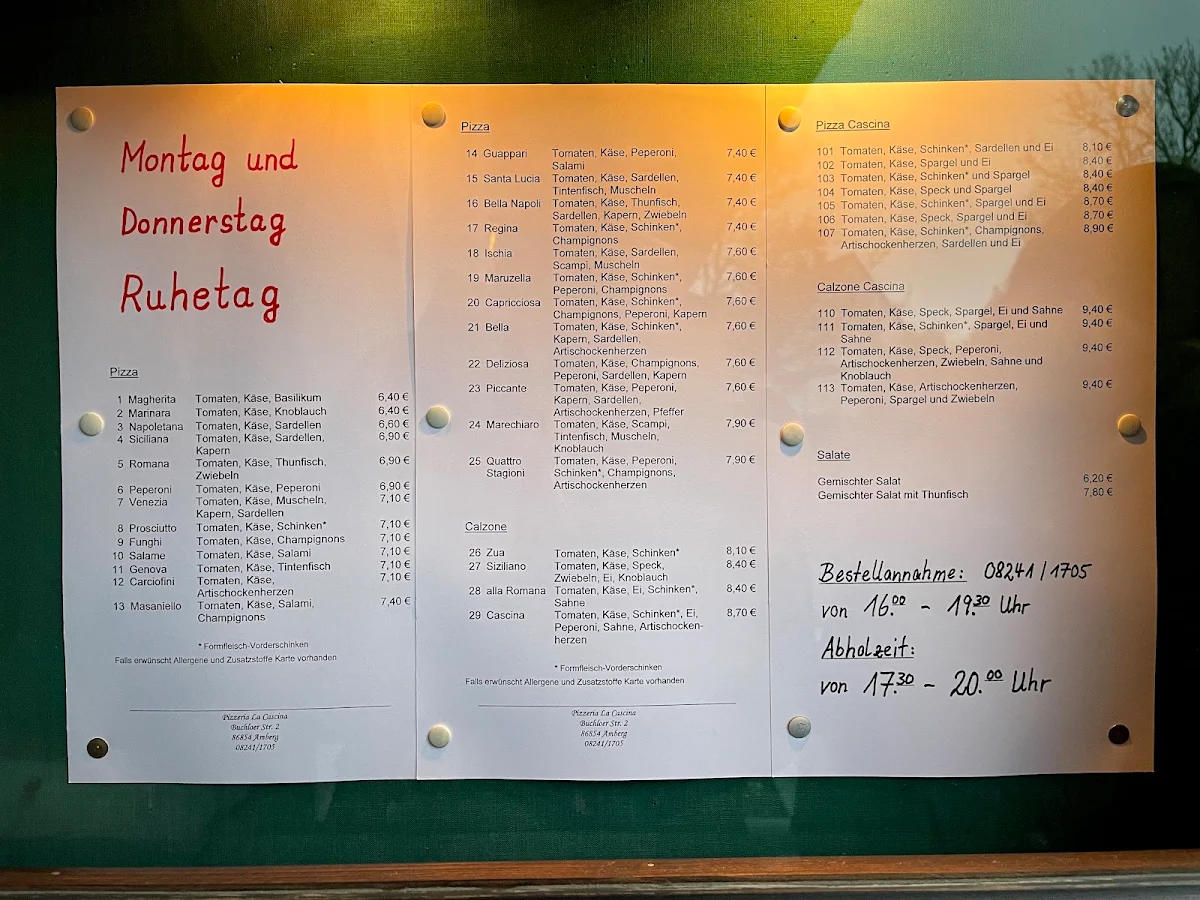 Montag und
Donnerstag
Ruhetag
Pizza
1 Magherita Tomaten, Käse, Basilikum 6,40 €
2 Marinara Tomaten, Käse, Knoblauch 6,40 €
3 Napoletana Tomaten, Käse, Sardellen 6,60 €
4 Siciliana Tomaten, Käse, Sardellen, 6,90 €
Kapern
5 Romana Tomaten, Käse, Thunfisch, 6,90 €
Zwiebeln
6 Peperoni Tomaten, Käse, Peperoni 6,90 €
7 Venezia Tomaten, Käse, Muscheln, 7,10 €
Kapern, Sardellen
8 Prosciutto Tomaten, Käse, Schinken* 7,10 €
9 Funghi Tomaten, Käse, Champignons 7,10 €
10 Salame Tomaten, Käse, Salami 7,10 €
11 Genova Tomaten, Käse, Tintenfisch 7,10 €
12 Carciofini Tomaten, Käse, 7,10 €
Artischockenherzen
13 Masaniello Tomaten, Käse, Salami, 7,40 €
Champignons
* Formfleisch-Vorderschinken
Falls erwünscht Allergene und Zusatzstoffe Karte vorhanden
Pizzeria La Cascina
Buchloer Str. 2
86854 Amberg
08241/1705
Pizza
14 Guappari Tomaten, Käse, Peperoni, 7,40 €
Salami
15 Santa Lucia Tomaten, Käse, Sardellen, 7,40 €
Tintenfisch, Muscheln
16 Bella Napoli Tomaten, Käse, Thunfisch, 7,40 €
Sardellen, Kapern, Zwiebeln
17 Regina Tomaten, Käse, Schinken*, 7,40 €
Champignons
18 Ischia Tomaten, Käse, Sardellen, 7,60 €
Scampi, Muscheln
19 Maruzella Tomaten, Käse, Schinken*, 7,60 €
Peperoni, Champignons
20 Capricciosa Tomaten, Käse, Schinken*, 7,60 €
Champignons, Peperoni, Kapern
21 Bella Tomaten, Käse, Schinken*, 7,60 €
Kapern, Sardellen,
Artischockenherzen
22 Deliziosa Tomaten, Käse, Champignons, 7,60 €
Peperoni, Sardellen, Kapern
23 Piccante Tomaten, Käse, Peperoni, 7,60 €
Kapern, Sardellen,
Artischockenherzen, Pfeffer
24 Marechiaro Tomaten, Käse, Scampi, 7,90 €
Tintenfisch, Muscheln,
Knoblauch
25 Quattro Tomaten, Käse, Peperoni, 7,90 €
Stagioni Schinken*, Champignons,
Artischockenherzen
Calzone
26 Zua Tomaten, Käse, Schinken* 8,10 €
27 Siziliano Tomaten, Käse, Speck, 8,40 €
Zwiebeln, Ei, Knoblauch
28 alla Romana Tomaten, Käse, Ei, Schinken*, 8,40 €
Sahne
29 Cascina Tomaten, Käse, Schinken*, Ei, 8,70 €
Peperoni, Sahne, Artischocken-
herzen
* Formfleisch-Vorderschinken
Falls erwünscht Allergene und Zusatzstoffe Karte vorhanden
Pizzeria La Cascina
Buchloer Str. 2
86854 Amberg
08241/1705
Pizza Cascina
101 Tomaten, Käse, Schinken*, Sardellen und Ei 8,10 €
102 Tomaten, Käse, Spargel und Ei 8,40 €
103 Tomaten, Käse, Schinken* und Spargel 8,40 €
104 Tomaten, Käse, Speck und Spargel 8,40 €
105 Tomaten, Käse, Schinken*, Spargel und Ei 8,70 €
106 Tomaten, Käse, Speck, Spargel und Ei 8,70 €
107 Tomaten, Käse, Schinken*, Champignons, 8,90 €
Artischockenherzen, Sardellen und Ei
Calzone Cascina
110 Tomaten, Käse, Speck, Spargel, Ei und Sahne 9,40 €
111 Tomaten, Käse, Schinken*, Spargel, Ei und 9,40 €
Sahne
112 Tomaten, Käse, Speck, Peperoni, 9,40 €
Artischockenherzen, Zwiebeln, Sahne und
Knoblauch
113 Tomaten, Käse, Artischockenherzen, 9,40 €
Peperoni, Spargel und Zwiebeln
Salate
Gemischter Salat 6,20 €
Gemischter Salat mit Thunfisch 7,80 €
Bestellannahme: 08241/1705
von 16.00 - 19.30 Uhr
Abholzeit:
von 17.30 - 20.00 Uhr